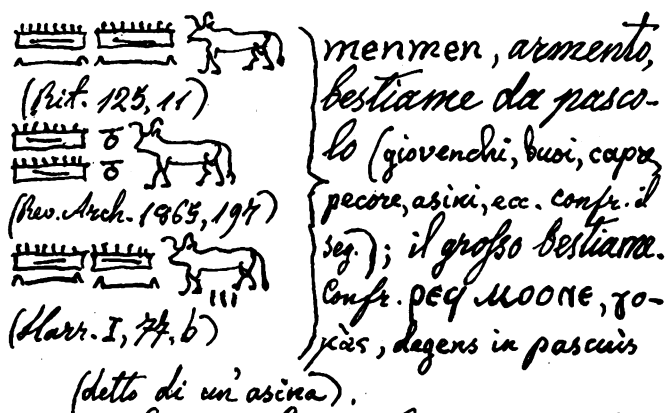 𓏠𓈖𓏠𓈖𓃒
(Rit. 125, 11)
(Rev. Arch. 1865, 197)
𓏠𓈖𓏠𓈖𓃒𓏥
(Harr. I, 77, b)
menmen, armento,
bestiame da pasco-
lo (giovenchi, buoi, capre,
pecore, asini, ecc. confr. il
seg.); il grosso bestiame.
Confr. ⲣⲉϥ ⲙⲟⲟⲛⲉ,
degens in pascuis
(detto di un'asina).